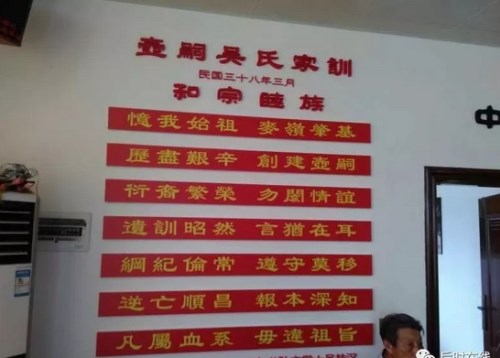 壺嗣吴氏家訓
民国三十八年三月
和宗睦族
憶我始祖 麥嶺肇基
歷盡艱辛 創建壺嗣
衍裔繁榮 勿閡情誼
遺訓昭然 言猶在耳
綱紀倫常 遵守莫移
逆亡順昌 報本深知
凡屬血系 毋違祖旨
中